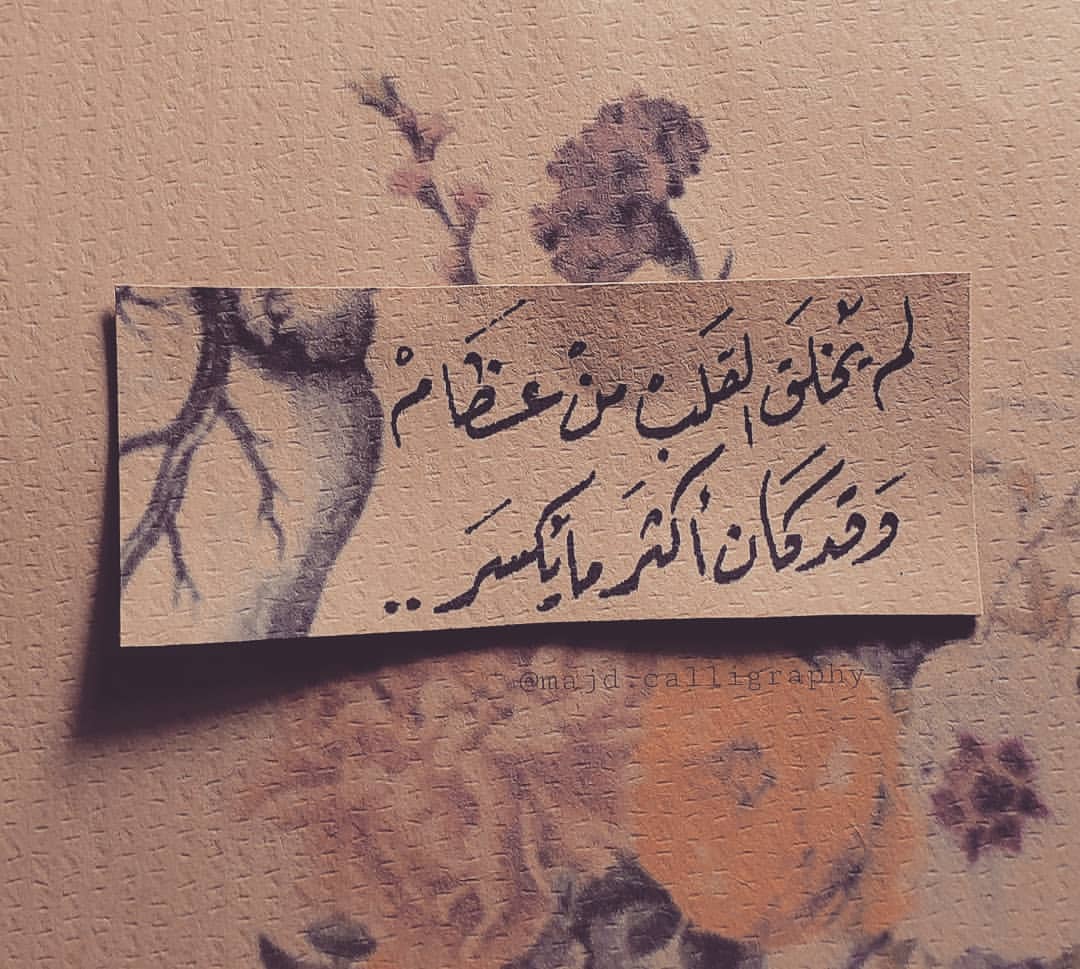 لم يُخلق القلَبْ منْ عـظَامْ
وَقد كَان أكثَر مايُكسَر ..
@majd.calligraphy